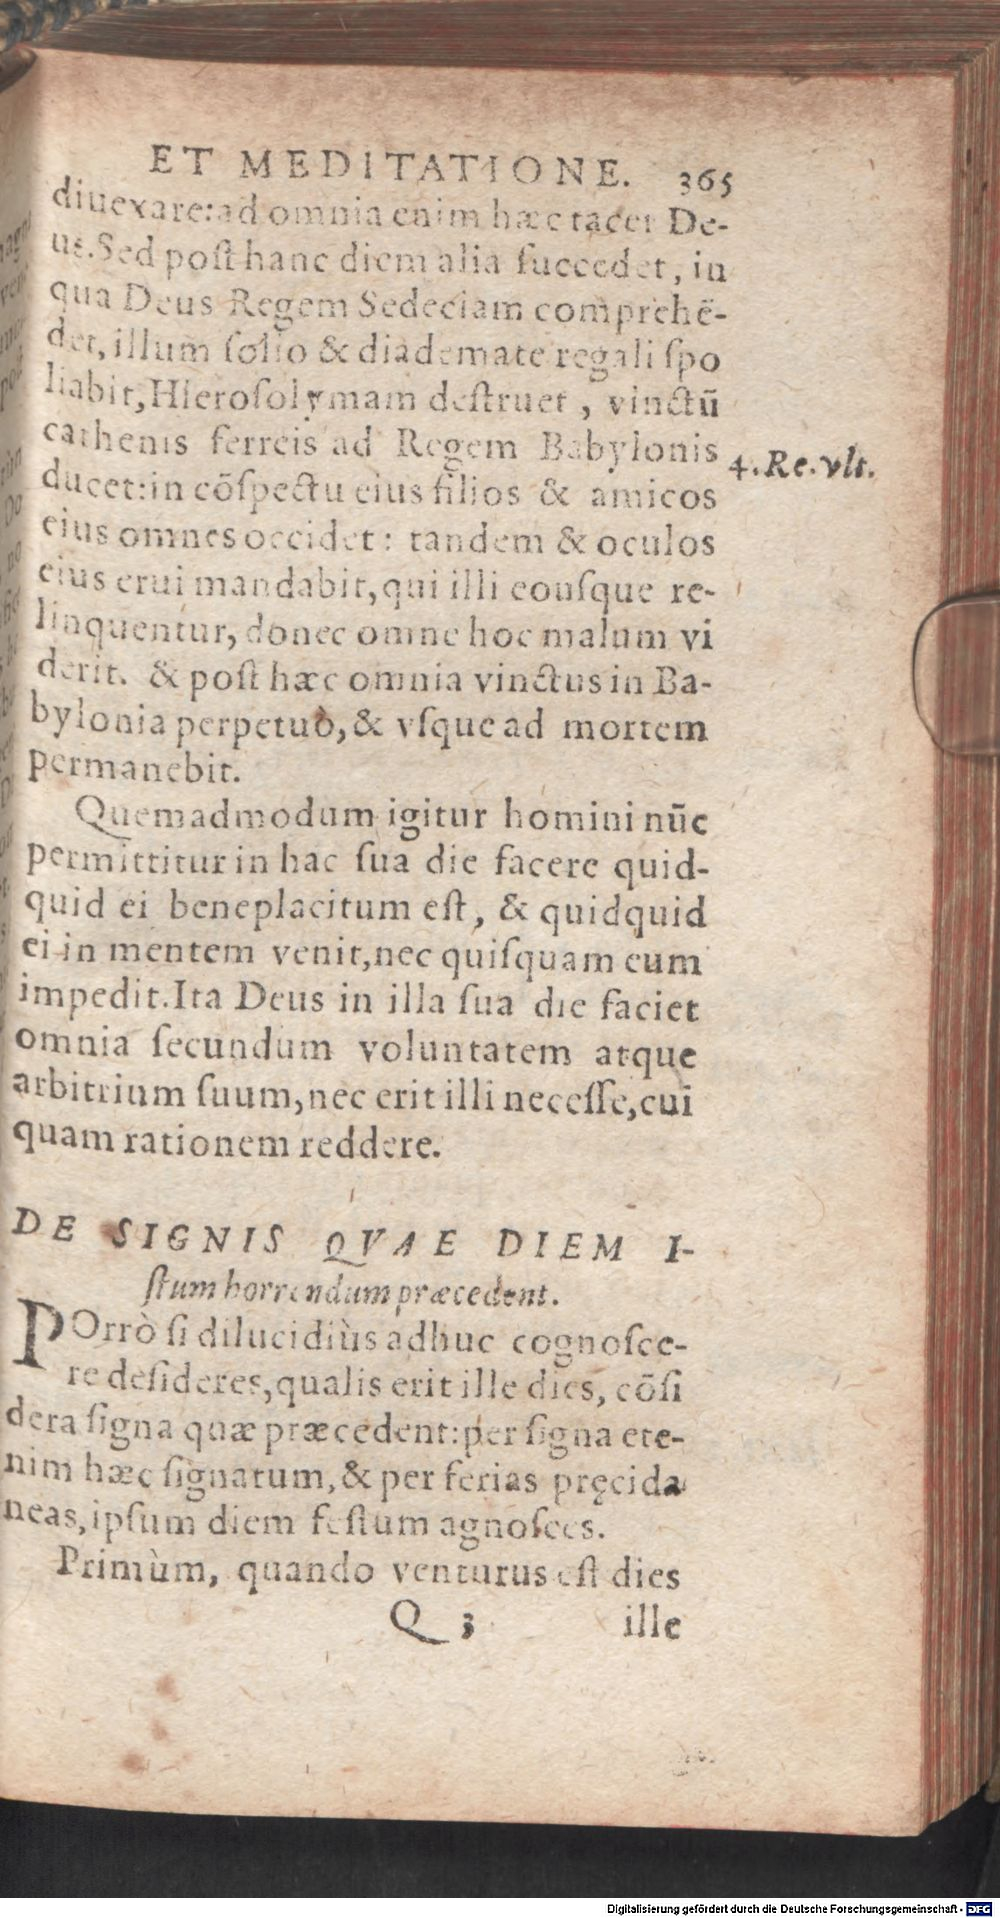 ET MEDITATIONE. 365
diuexare:ad omnia enim hæc tacet De-
us.Sed poſt hanc diem alia ſuccedet, in
qua Deus Regem Sedeciam comprehē-
det, illum ſolio & diademate regali ſpo
liabit, Hieroſolymam deſtruet, vinctū
cathenis ferreis ad Regem Babylonis
4. Re. vlt.
ducet: in cōſpectu eius filios & amicos
eius omnes occidet: tandem & oculos
eius erui mandabit, qui illi eouſque re-
linquentur, donec omne hoc malum vi
derit. & poſt hæc omnia vinctus in Ba-
bylonia perpetuò, & vſque ad mortem
permanebit.
Quemadmodum igitur homini nūc
permittitur in hac ſua die facere quid-
quid ei beneplacitum eſt, & quidquid
ei in mentem venit, nec quiſquam eum
impedit. Ita Deus in illa ſua die faciet
omnia ſecundum voluntatem atque
arbitrium ſuum, nec erit illi neceſſe, cui
quam rationem reddere.
DE SIGNIS QVAE DIEM I-
ſtum horrendum præcedent.
POrrò ſi dilucidiùs adhuc cognoſce-
re deſideres, qualis erit ille dies, cōſi
dera ſigna quæ præcedent: per ſigna ete-
nim hæc ſignatum, & per ferias pręcida
neas, ipſum diem feſtum agnoſces.
Primùm, quando venturus eſt dies
Q 3 ille
Digitalisierung gefördert durch die Deutsche Forschungsgemeinschaft - DFG